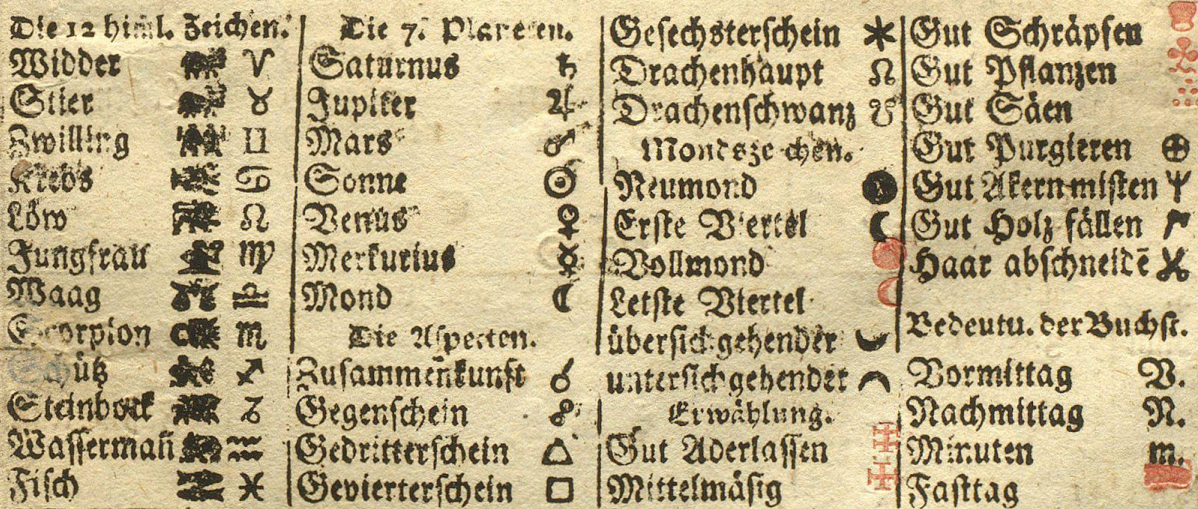 Die 12 himl. Zeichen.
Widder ♈
Stier ♉
Zwilling ♊
Krebs ♋
Löw ♌
Jungfrau ♍
Waag ♎
Scorpion ♏
Schütz ♐
Steinbock ♑
Wasserman̄ ♒
Fisch ♓
Die 7. Planeten.
Saturnus ♄
Jupiter ♃
Mars ♂
Sonne ☉
Venus ♀
Merkurius ☿
Mond ☾
Die Aspecten.
Zusammenkunft ☌
Gegenschein ☍
Gedritterschein △
Gevierterschein □
Gesechsterschein ⚹
Drachenhaupt ☊
Drachenschwanz ☋
Mondszeichen.
Neumond
Erste Viertel
Vollmond
Letste Viertel
übersichgehender
untersichgehender
Erwählung.
Gut Aderlassen
Mittelmäsig
Gut Schräpfen
Gut Pflanzen
Gut Säen
Gut Purgieren
Gut Akern misten
Gut Holz fällen
Haar abschneidē
Bedeutu. der Buchst.
Vormittag V.
Nachmittag N.
Minuten m.
Fasttag